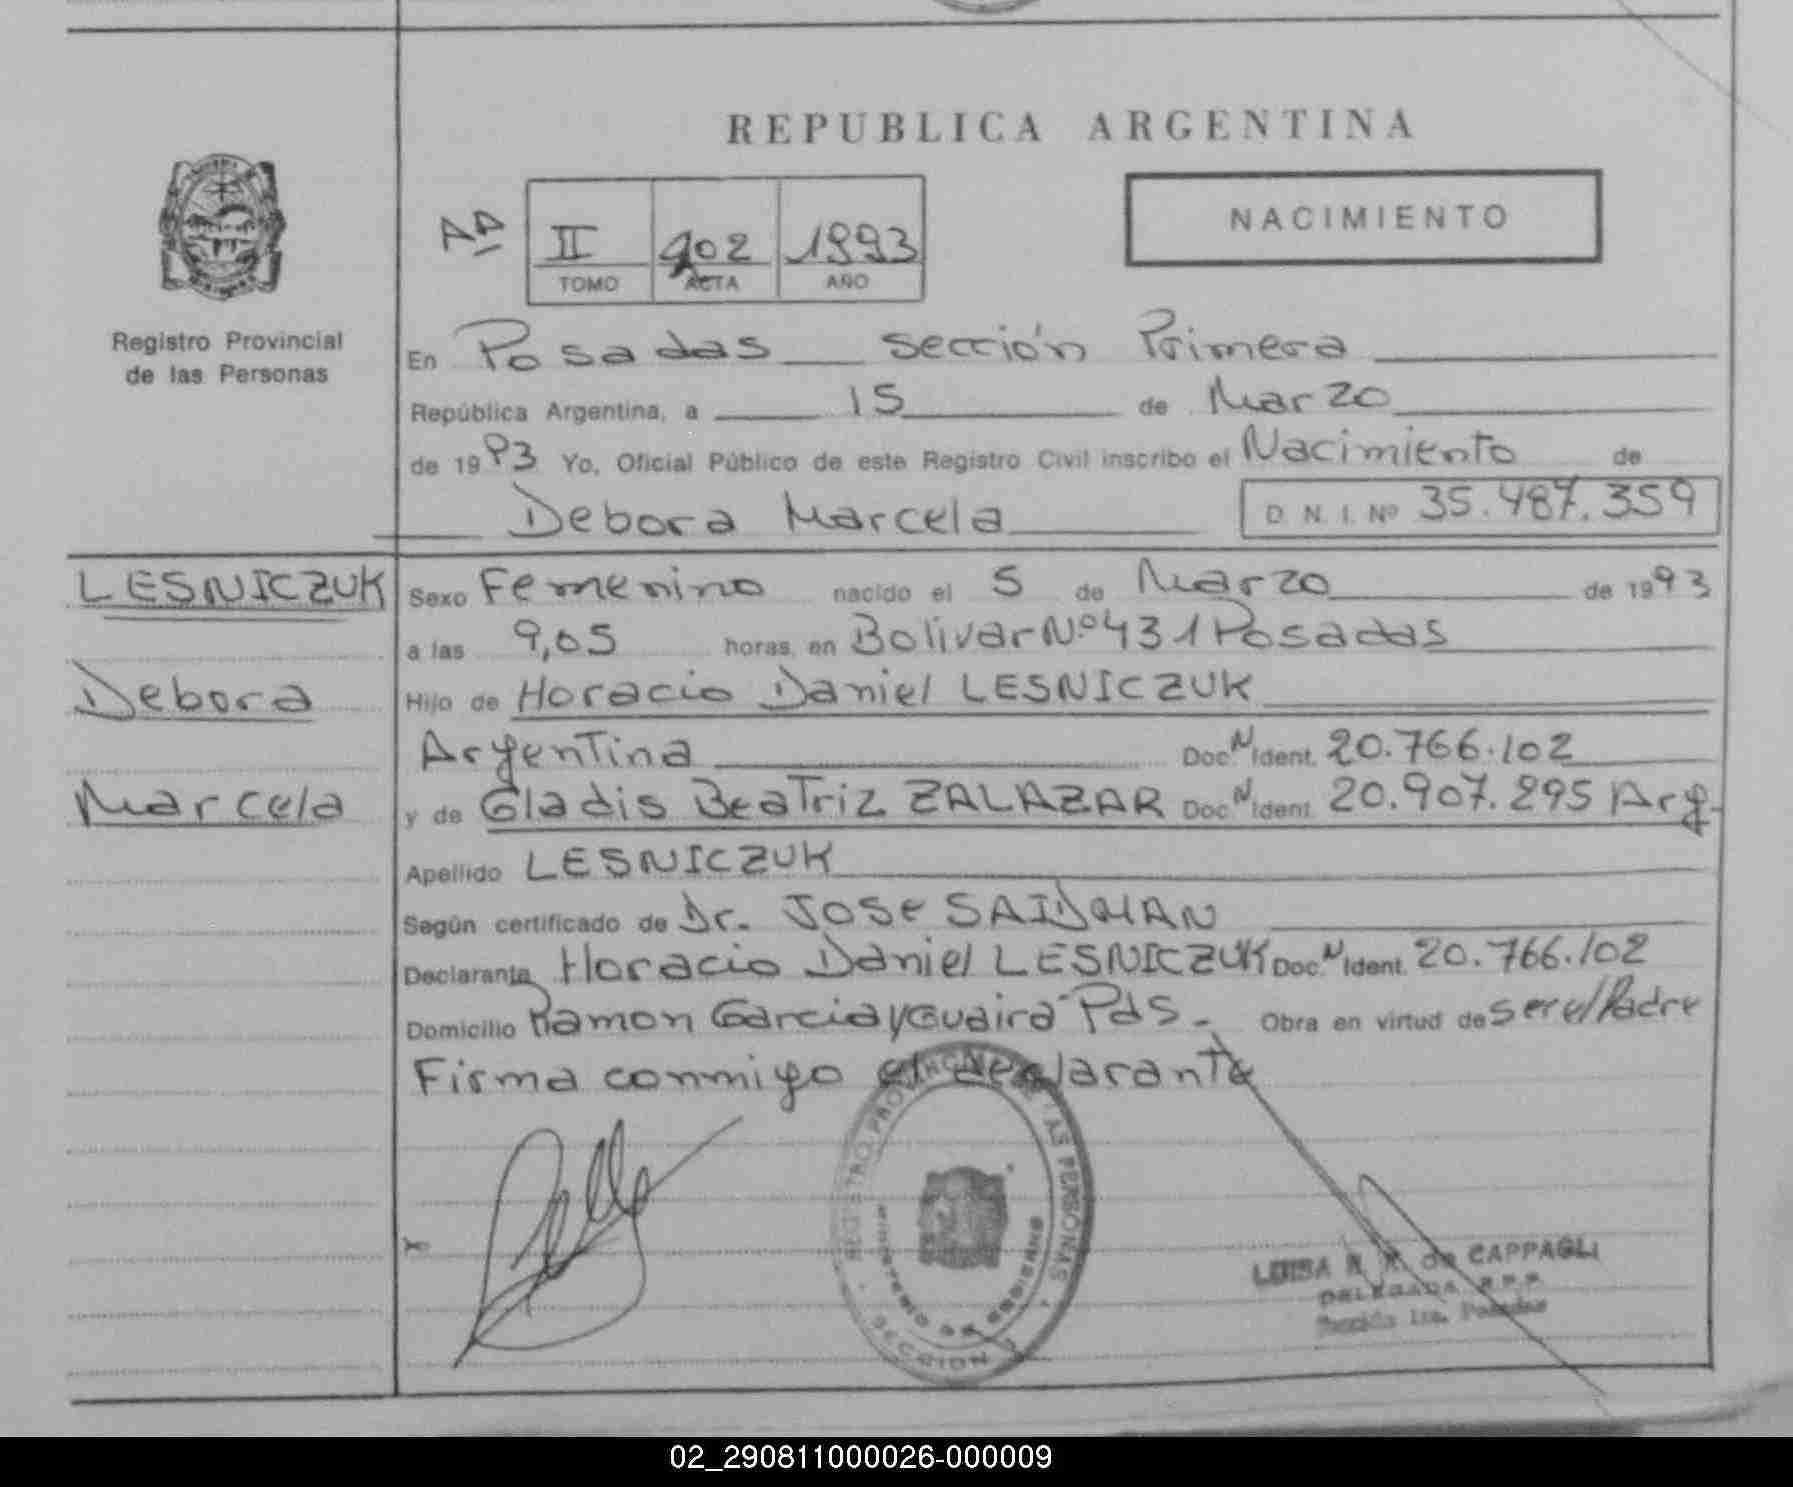 REPUBLICA ARGENTINA
NACIMIENTO
AA
II 402 1993
TOMO ACTA AÑO
Registro Provincial
de las Personas
En Posadas sección Primera
República Argentina, a 15 de Marzo
de 1993 Yo, Oficial Público de este Registro Civil inscribo el Nacimiento de
Debora Marcela D. N. I. Nº 35.487.359
LESNICZUK
Debora
Marcela
Sexo Femenino nacido el 5 de Marzo de 1993
a las 9,05 horas, en Bolivar Nº 431 Posadas
Hijo de Horacio Daniel LESNICZUK
Argentina Doc. N Ident. 20.766.102
y de Gladis Beatriz ZALAZAR Doc. N Ident. 20.907.295 Arg.
Apellido LESNICZUK
Según certificado de Dr. JOSe SAIDMAN
Declarante Horacio Daniel LESNICZUK Doc. N Ident. 20.766.102
Domicilio Ramon Garcia y Guaira Pds. Obra en virtud de ser el Padre
Firma conmigo el declarante
REGISTRO PROVINCIAL DE LAS PERSONAS
MINISTERIO DE GOBIERNO
SECCION 1
LUISA R. de CAPPAGLI
DELEGADA R.P.P.
Sección 1ra. Posadas
02_290811000026-000009